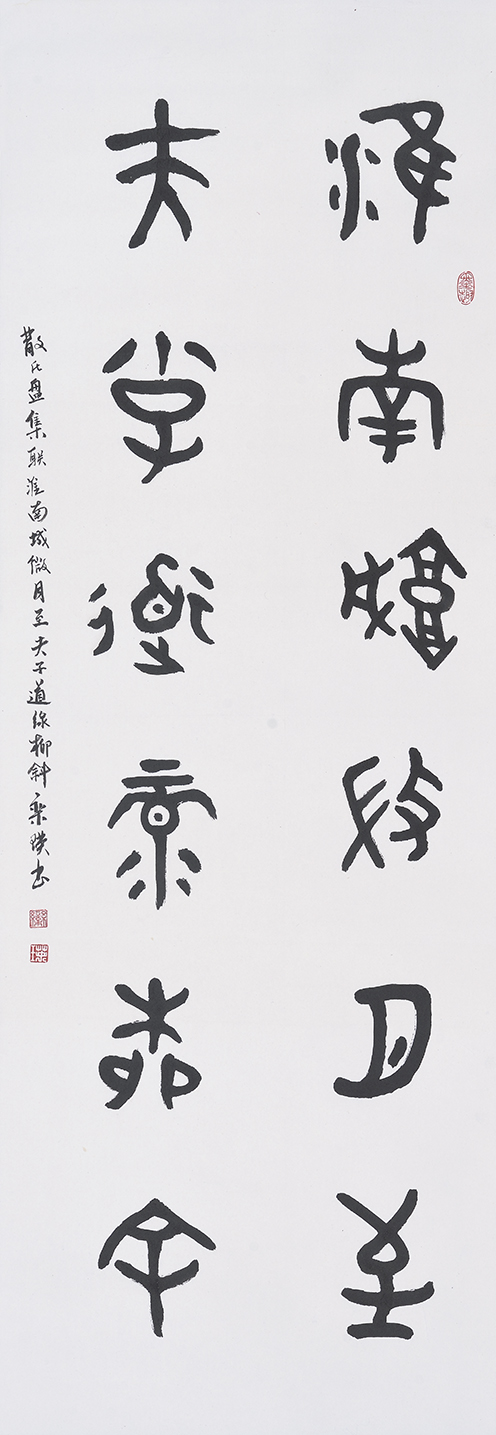 淮南城微月至
夫子道绿柳斜
散氏盘集联淮南城微月至夫子道绿柳斜 栾书